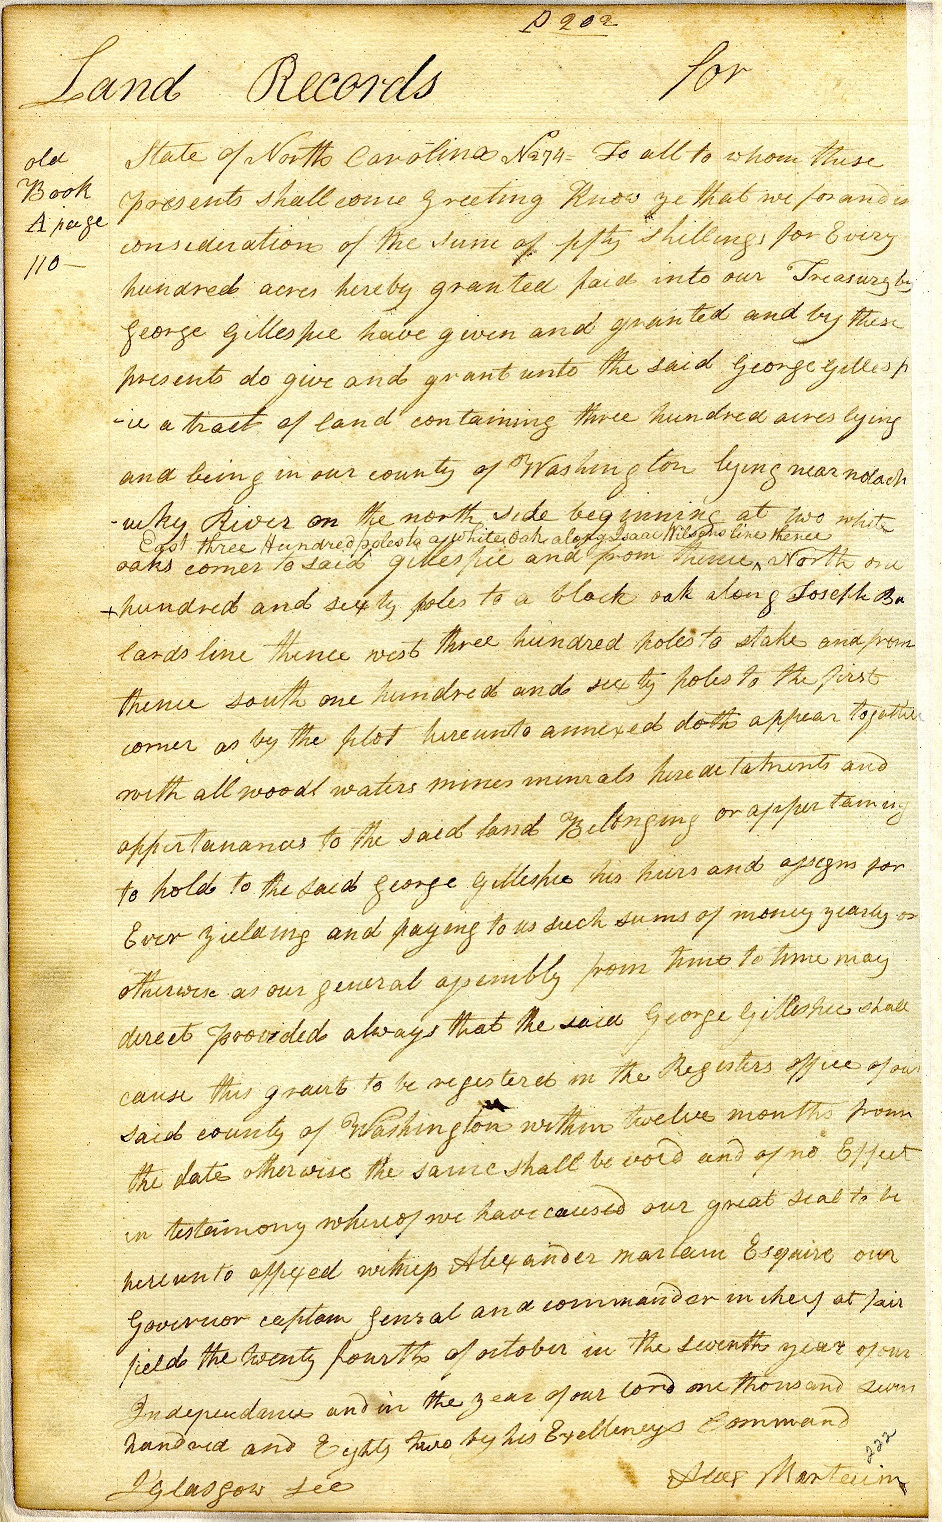 P 202
Land Records for
old
Book
A page
110 —
State of North Carolina No 274 = To all to whom these
presents shall come Greeting Know ye that we for and in
consideration of the sum of fifty shillings for Every
hundred acres hereby granted paid into our Treasury by
George Gillespie have given and granted and by these
presents do give and grant unto the said George Gillesp
-ie a tract of land containing three hundred acres lying
and being in our county of Washington lying near nolach
-ucky River on the north side beginning at two white
East three Hundred poles to a white oak along Isaac Wilsons line thence
oaks corner to said Gillespie and from thence ^ North one
+hundred and sixty poles to a black oak along Joseph Bu
lards line thence west three hundred poles to stake and from
thence south one hundred and sixty poles to the first
corner as by the plot hereunto annexed doth appear together
with all woods waters mines minrals hereditatments and
appertanances to the said land Belonging or appertaining
to hold to the said George Gillespie his heirs and assigns for
Ever yielding and paying to us such sums of money yearly or
otherwise as our general assembly from time to time may
direct provided always that the said George Gillespie shall
cause this grant to be registered in the Registers office of our
said county of Washington within twelve months from
the date otherwise the same shall be void and of no Effect
in testaimony whereof we have caused our great seal to be
hereunto affixed witness Alexander martain Esquire our
Governor captain Genral and commander in cheif at fair
field the twenty fourth of october in the seventh year of our
Independance and in the year of our lord one thousand seven
hundred and Eighty two by his Excellencys Command
J Glasgow Sec Alex Martain
222